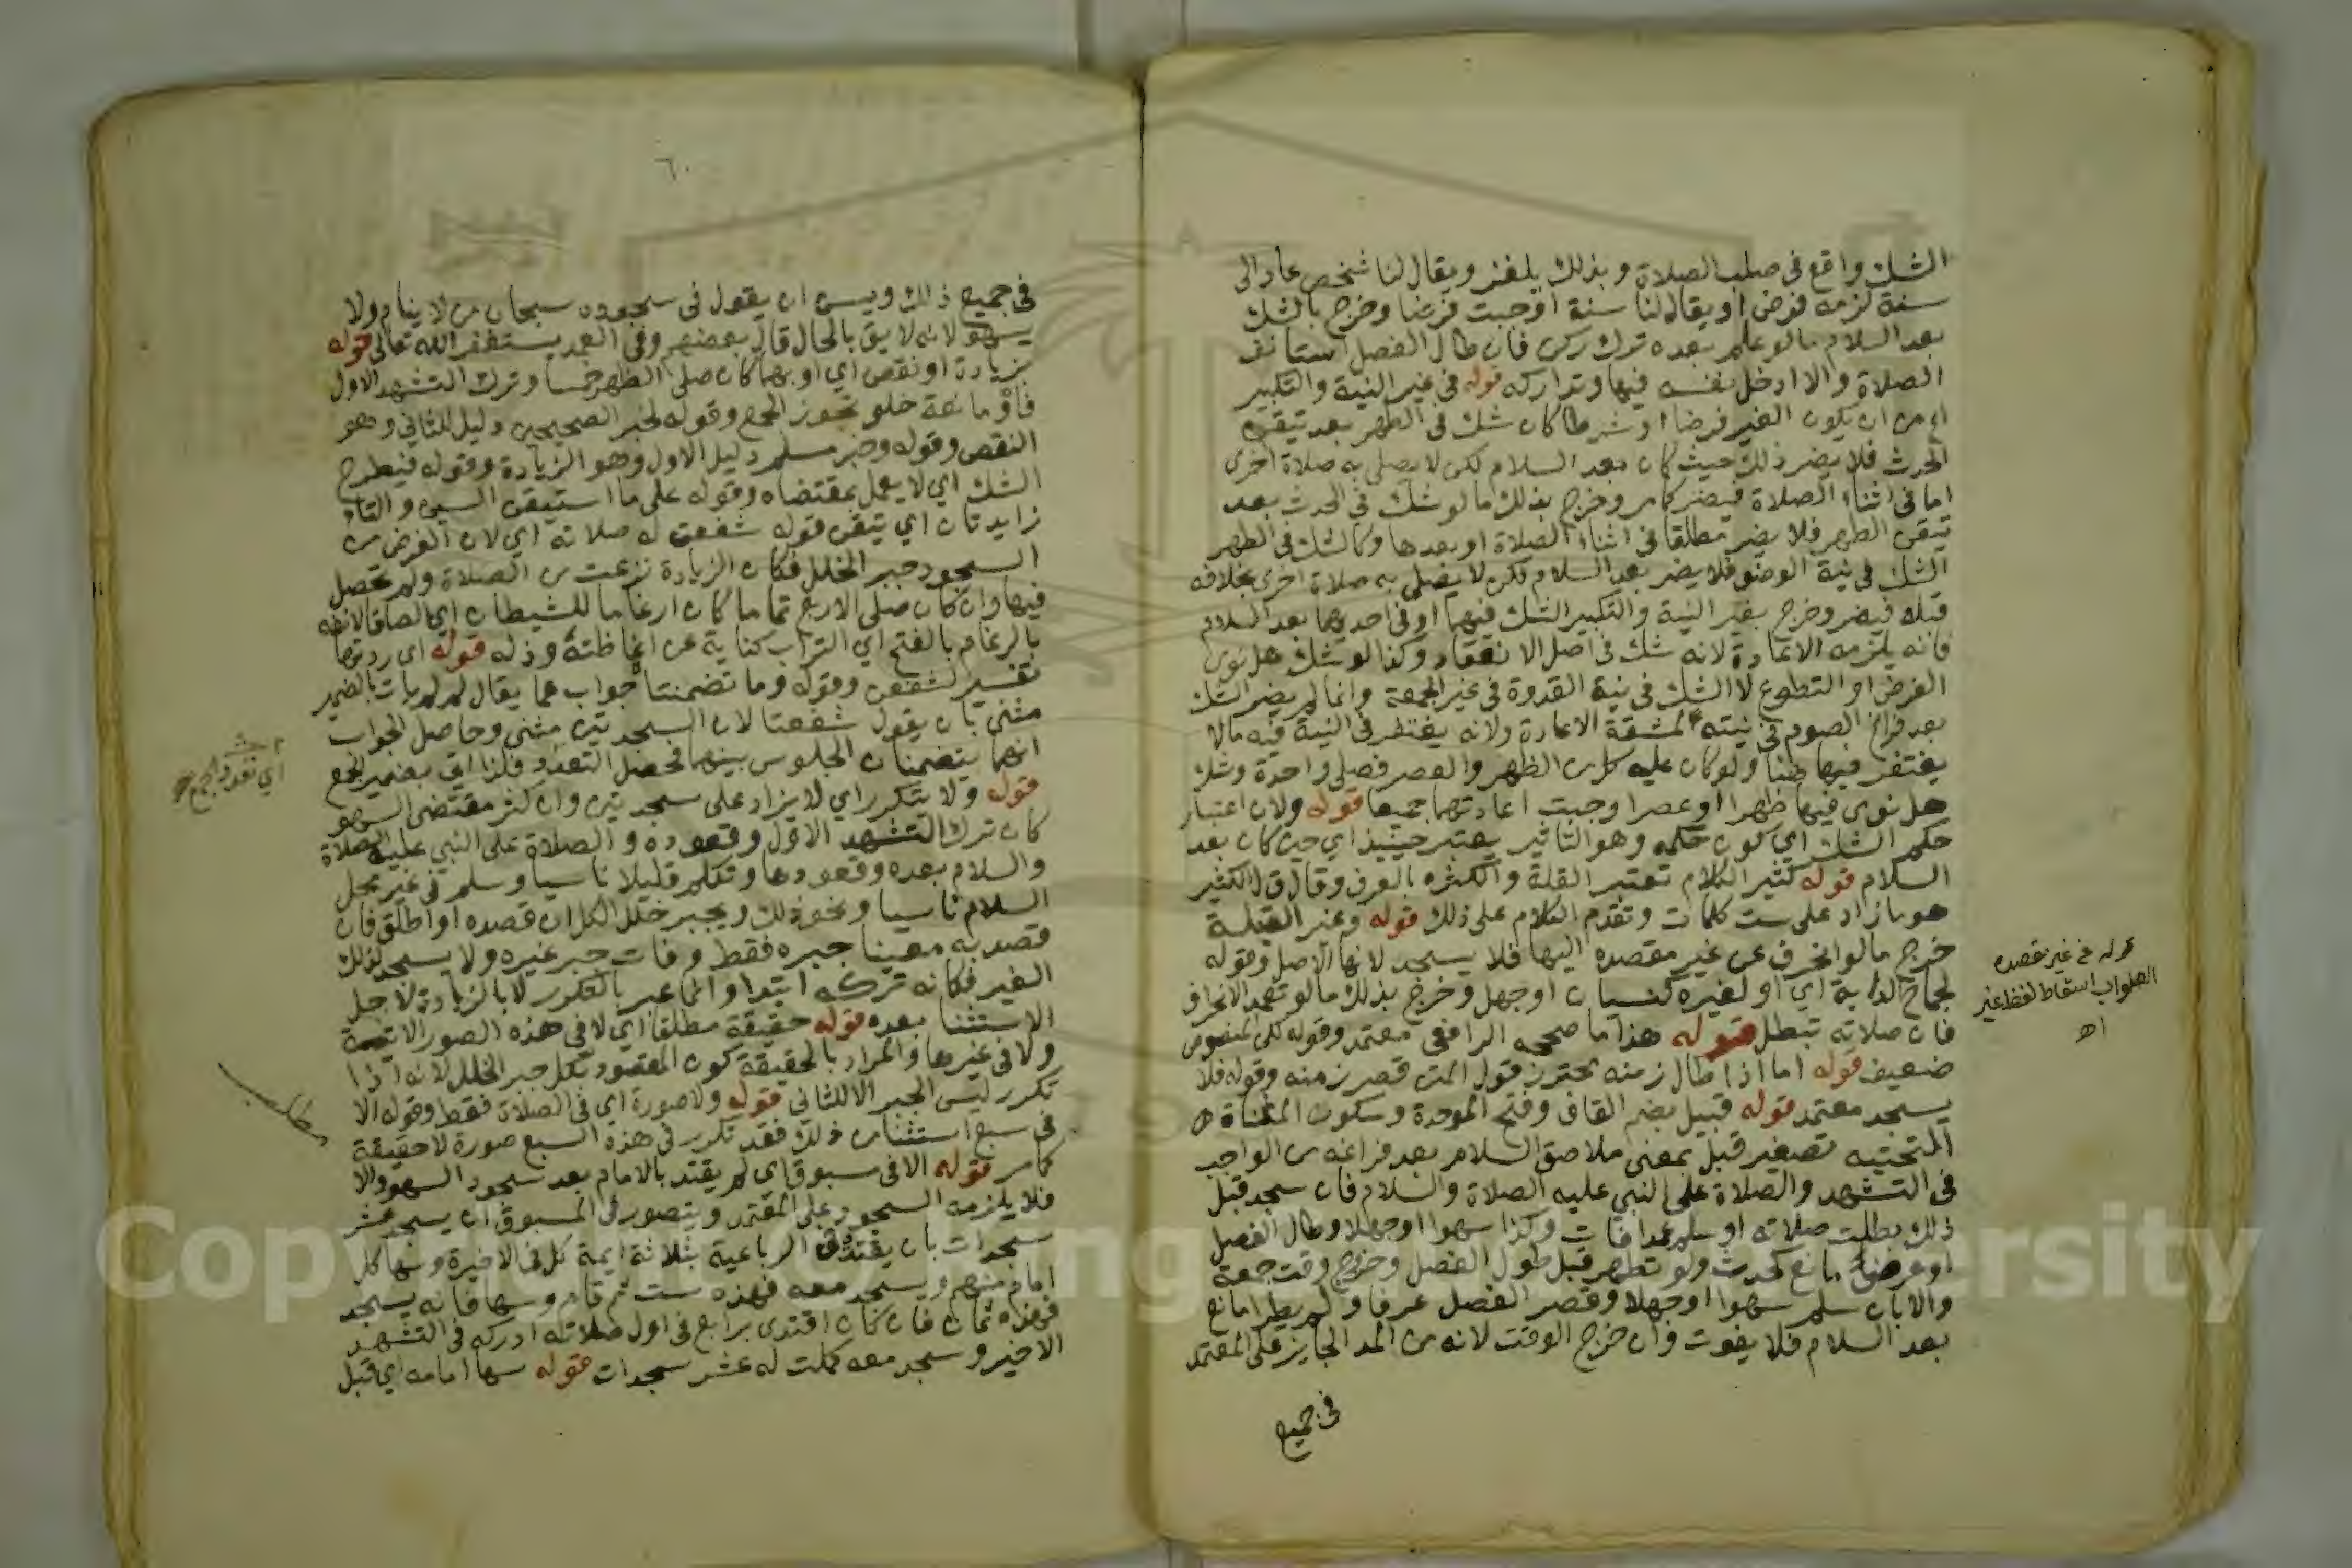 الشك واقع في صلب الصلاة وبذلك يلغز ويقال لنا شخص عاد الى
سنة لزمه فرض او يقال لنا سنة اوجبت فرضا وخرج بالشك
بعد السلام ما لو علم بعده ترك ركن فان طال الفصل استانف
الصلاة والا ادخل نفسه فيها وتداركه قوله في غير النية والتكبير
اي من ان يكون الغير فرضا او شرطا كان شك في الطهر بعد تيقن
الحدث فلا يضر ذلك حيث كان بعد السلام لكن لا يصلي به صلاة اخرى
اما في اثناء الصلاة فيضر كما مر وخرج بذلك ما لو شك في الحدث بعد
تيقن الطهر فلا يضر مطلقا في اثناء الصلاة او بعدها وكالشك في الطهر
الشك في نية الوضو فلا يضر بعد السلام لكن لا يصلي به صلاة اخرى بخلافه
قبله فيضر وخرج بغير النية والتكبير الشك فيهما او في احديهما بعد السلام
فانه يلزمه الاعادة لانه شك في اصل الانعقاد وكذا لو شك هل نوى
الفرض او التطوع لا الشك في نية القدوة في غير الجمعة وانما لم يضر الشك
بعد فراغ الصوم في نيته لمشقة الاعادة ولانه يغتفر في النية فيه ما لا
يغتفر فيها هنا ولو كان عليه كل من الظهر والعصر فصلى واحدة وشك
هل نوى فيها ظهرا او عصرا وجبت اعادتهما جميعا قوله ولان اعتبار
حكم الشك اي كون حكمه وهو التاثير يعتبر حينيذ اي حين كان بعد
السلام قوله كثير الكلام تعتبر القلة والكثره بالعرف وقال ق ل الكثير
هو ما زاد على ست كلمات وتقدم الكلام على ذلك قوله وعنر القبلة
خرج ما لو انحرف عن غير مقصده اليها فلا يسجد لانها الاصل وقوله
لجماح الدابة اي او لغيره كنسيان او جهل وخرج بذلك ما لو تعمد الانحراف
فان صلاته تبطل قوله هذا ما صححه الرافعي معتمد وقوله لكن المنصوص
ضعيف قوله اما اذا طال زمنه محترز قول المتن قصر زمنه وقوله فلا
يسجد معتمد قوله قبيل بضم القاف وفتح الموحدة وسكون المثناة
التحتيه تصغير قبل بمعنى ملاصق السلام بعد فراغه من الواجب
في التشهد والصلاة على النبي عليه الصلاة والسلام فان سجد قبل
ذلك بطلت صلاته او سلم عمدا فات وكذا سهوا او جهلا وطال الفصل
او عرض مانع كحدث ولو تطهر قبل طول الفصل وخروج وقت جمعة
والا بان سلم سهوا او جهلا وقصر الفصل عرفا ولم يطرا مانع
بعد السلام فلا يفوت وان خرج الوقت لانه من المد الجايز على المعتمد
في جميع
قوله عن غير مقصده
الصواب اسقاط لفظ غير
اه
٦٠
في جميع ذلك ويسن ان يقول في سجوده سبحان من لا ينام ولا
يسهو لانه لايق بالحال قال بعضهم وفي العمد يستغفر الله تعالى قوله
بزيادة او نقص اي او بهما كان صلى الظهر خمسا وترك التشهد الاول
فاو مانعة خلو تجوز الجمع وقوله لخبر الصحيحين دليل للثاني وهو
النقص وقوله وخبر مسلم دليل الاول وهو الزيادة وقوله فيطرح
الشك اي لا يعمل بمقتضاه وقوله على ما استيقن السين والتاء
زايدتان اي تيقن قوله شفعن له صلاته اي لان الغرض من
السجود جبر الخلل فكان الزيادة نزعت من الصلاة ولم تحصل
فيها وان كان صلى الاربع تماما كان ارغاما للشيطان اي الصاقا لانفه
بالرغام بالفتح اي التراب كناية عن اغاظته وذله قوله اي ردتها
تفسير لشفعن وقوله وما تضمنتا جواب عما يقال لم لم يات بالضمير
مثنى بان يقول شفعتا لان السجدتين مثنى وحاصل الجواب
انهما يتضمنان الجلوس بينهما فحصل التعدد فلذا اتى بضمير الجمع
قوله ولا يتكرر اي لا يزاد على سجدتين وان كثر مقتضى السهو
كان ترك التشهد الاول وقعوده والصلاة على النبي عليه الصلاة
والسلام بعده وقعودها وتكلم قليلا ناسيا وسلم في غير محل
السلام ناسيا ونحو ذلك ويجبر خلل الكل ان قصده او اطلق فان
قصد به معينا جبره فقط وفات جبر غيره ولا يسجد لذلك
الغير فكانه تركه ابتدا وانما عبر بالتكرر لا بالزيادة لاجل
الاستثنا بعده قوله حقيقة مطلقا اي لا في هذه الصور الاتية
ولا في غيرها والمراد بالحقيقة كون المقصود بكل جبر الخلل لانه اذا
تكرر ليس الجبر الا للثاني قوله ولا صورة اي في الصلاة فقط وقوله الا
في سبع استثنا من ذلك فقد تكرر في هذه السبع صورة لا حقيقة
كما مر قوله الا في مسبوق اي لم يقتد بالامام بعد سجود السهو والا
فلا يلزمه السجود على المعتمد ويتصور في المسبوق ان يسجد عشر
سجدات بان يقتدي في الرباعية بثلاثة ايمة كل في الاخيرة وسها كل
امام منهم ويسجد معه فهذه ست ثم قام وسها فانه يسجد
فهذه ثمان فان كان اقتدى برابع في اول صلاته ادركه في التشهد
الاخير وسجد معه كملت له عشر سجدات قوله سها امامه اي قبل
اي تعدد الجمع